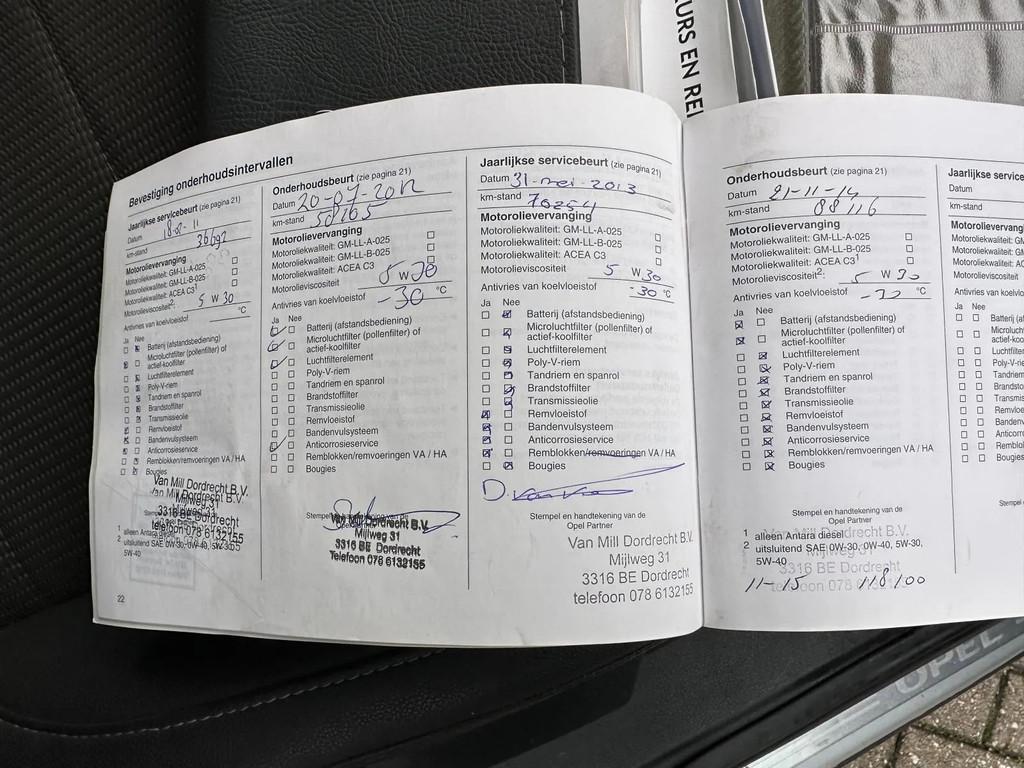 EURS EN REI
Bevestiging onderhoudsintervallen
Jaarlijkse servicebeurt (zie pagina 21)
Datum
km-stand
Motorolievervanging
Motoroliekwaliteit: GM-LL-A-025
Motoroliekwaliteit: GM-LL-B-025
Motoroliekwaliteit: ACEA C3¹
Motorolieviscositeit²: 5 W 30
Antivries van koelvloeistof °C
Ja Nee
Batterij (afstandsbediening)
Microluchtfilter (pollenfilter) of
actief-koolfilter
Luchtfilterelement
Poly-V-riem
Tandriem en spanrol
Brandstoffilter
Transmissieolie
Remvloeistof
Bandenvulsysteem
Anticorrosieservice
Remblokken/remvoeringen VA / HA
Bougies
Van Mill Dordrecht B.V.
Mijlweg 31
3316 BE Dordrecht
telefoon 078 6132155
1 alleen Antara diesel
2 uitsluitend SAE 0W-30, 0W-40, 5W-30,
5W-40
22
Onderhoudsbeurt (zie pagina 21)
Datum 20-07-2012
km-stand 58165
Motorolievervanging
Motoroliekwaliteit: GM-LL-A-025
Motoroliekwaliteit: GM-LL-B-025
Motoroliekwaliteit: ACEA C3
Motorolieviscositeit W
Antivries van koelvloeistof -30 °C
Ja Nee
Batterij (afstandsbediening)
Microluchtfilter (pollenfilter) of
actief-koolfilter
Luchtfilterelement
Poly-V-riem
Tandriem en spanrol
Brandstoffilter
Transmissieolie
Remvloeistof
Bandenvulsysteem
Anticorrosieservice
Remblokken/remvoeringen VA / HA
Bougies
Stempel en handtekening van de
Van Mill Dordrecht B.V.
Mijlweg 31
3316 BE Dordrecht
Telefoon 078 6132155
Jaarlijkse servicebeurt (zie pagina 21)
Datum 31-mei-2013
km-stand 70254
Motorolievervanging
Motoroliekwaliteit: GM-LL-A-025
Motoroliekwaliteit: GM-LL-B-025
Motoroliekwaliteit: ACEA C3
Motorolieviscositeit 5 W 30
Antivries van koelvloeistof -30 °C
Ja Nee
Batterij (afstandsbediening)
Microluchtfilter (pollenfilter) of
actief-koolfilter
Luchtfilterelement
Poly-V-riem
Tandriem en spanrol
Brandstoffilter
Transmissieolie
Remvloeistof
Bandenvulsysteem
Anticorrosieservice
Remblokken/remvoeringen VA / HA
Bougies
Stempel en handtekening van de
Opel Partner
Van Mill Dordrecht B.V.
Mijlweg 31
3316 BE Dordrecht
telefoon 078 6132155
Onderhoudsbeurt (zie pagina 21)
Datum 21-11-14
km-stand 88116
Motorolievervanging
Motoroliekwaliteit: GM-LL-A-025
Motoroliekwaliteit: GM-LL-B-025
Motoroliekwaliteit: ACEA C3¹
Motorolieviscositeit²: 5 W 30
Antivries van koelvloeistof °C
Ja Nee
Batterij (afstandsbediening)
Microluchtfilter (pollenfilter) of
actief-koolfilter
Luchtfilterelement
Poly-V-riem
Tandriem en spanrol
Brandstoffilter
Transmissieolie
Remvloeistof
Bandenvulsysteem
Anticorrosieservice
Remblokken/remvoeringen VA / HA
Bougies
Stempel en handtekening van de
Opel Partner
1 alleen Antara diesel
2 uitsluitend SAE 0W-30, 0W-40, 5W-30,
5W-40
Van Mill Dordrecht B.V.
3316 BE Dordrecht
telefoon 078 6132155
11-15 118100
Jaarlijkse serv
Datum
km-stand
Motorolievervang
Motoroliekwaliteit: G
Motoroliekwaliteit: G
Motoroliekwaliteit: AC
Motorolieviscositeit
Antivries van koelvloe
Ja Nee
Batterij (af
Microluch
actief-koo
Luchtfilte
Poly-V-r
Tandriem
Brandst
Transmis
Remvlo
Banden
Anticor
Rembl
Bougie
OPEL